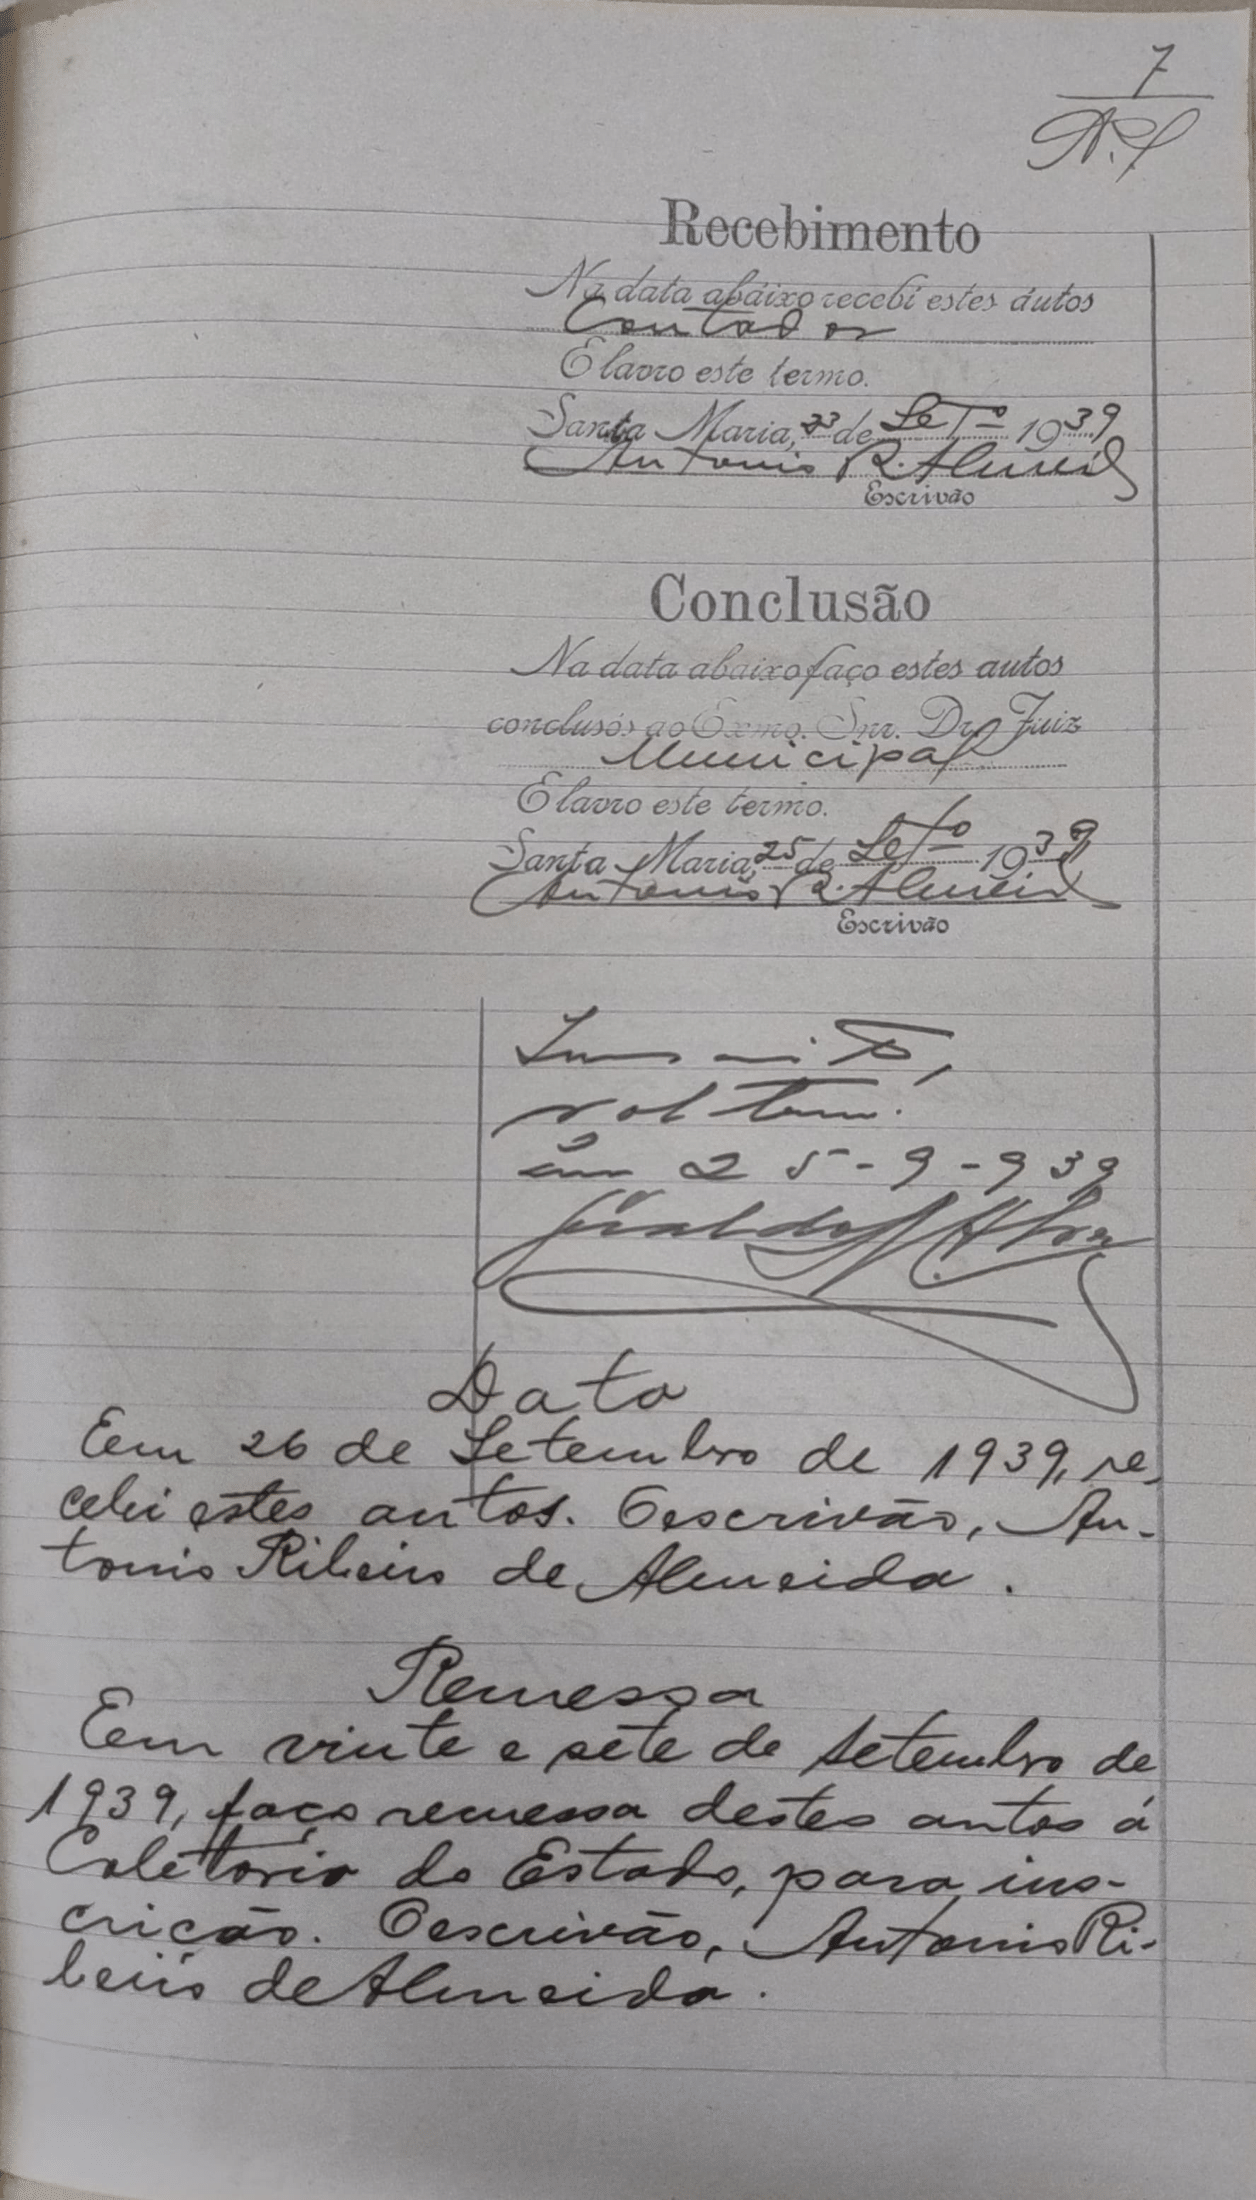 7
Recebimento
Na data abaixo recebi estes autos
Contador
E lavro este termo.
Santa Maria, 23 de Setº 1939
Antonio R. Almeida
Escrivão
Conclusão
Na data abaixo faço estes autos
conclusos ao Exmo. Snr. Dr. Juiz
Municipal
E lavro este termo.
Santa Maria, 25 de Setº 1939
Antonio R. Almeida
Escrivão
voltem.
em 25-9-939
Data
Em 26 de Setembro de 1939, re-
cebi estes autos. O escrivão, An-
tonio Ribeiro de Almeida.
Remessa
Em vinte e sete de setembro de
1939, faço remessa destes autos á
Coletoria do Estado, para ins-
crição. O escrivão, Antonio Ri-
beiro de Almeida.